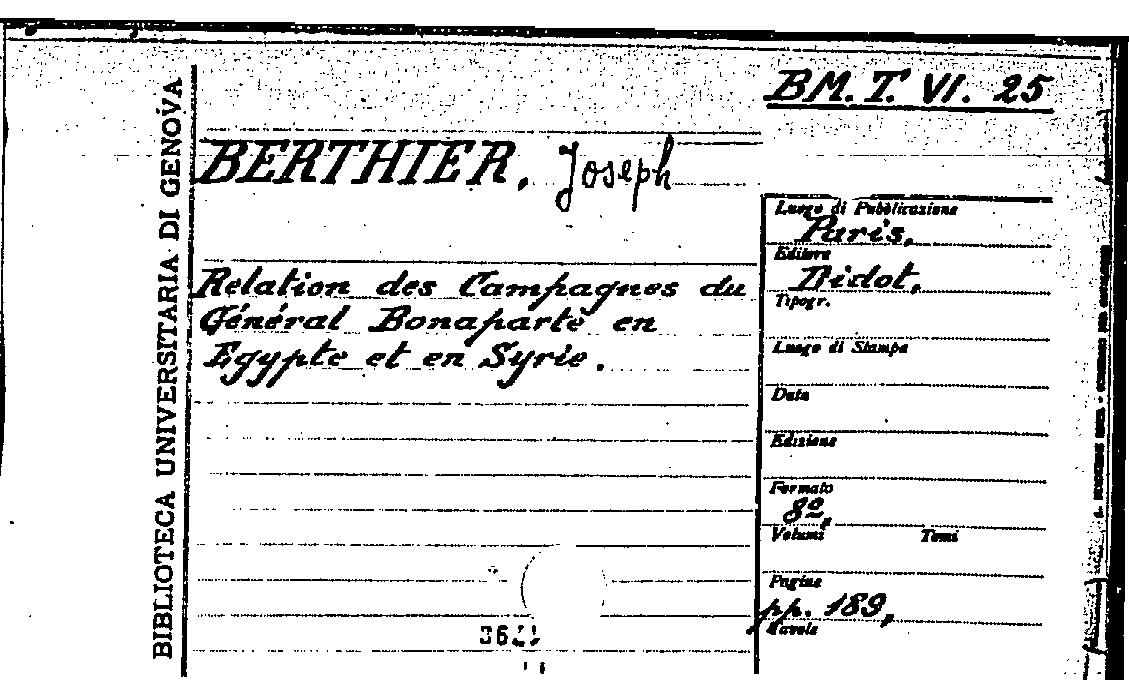 BIBLIOTECA UNIVERSITARIA DI GENOVA
BM. T. VI. 25
BERTHIER, Joseph
Relation des Campagnes du
Général Bonaparte en
Egypte et en Syrie.
Luogo di Pubblicazione
Paris,
Editore
Didot,
Tipogr.
Luogo di Stampa
Data
Edizione
Formato
8º,
Volumi Tomi
Pagine
pp. 189,
Tavole